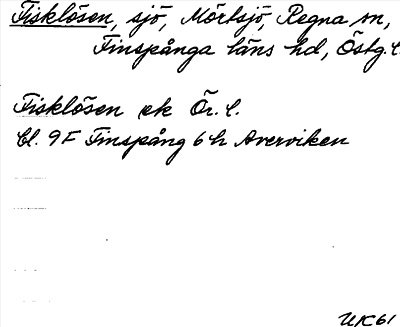 Fisklösen, sjö, Mörtsjö, Regna sn,
Finspånga läns hd, Östg.l.
Fisklösen ek Ör.l.
Bl. 9F Finspång 6h Averviken
UK61